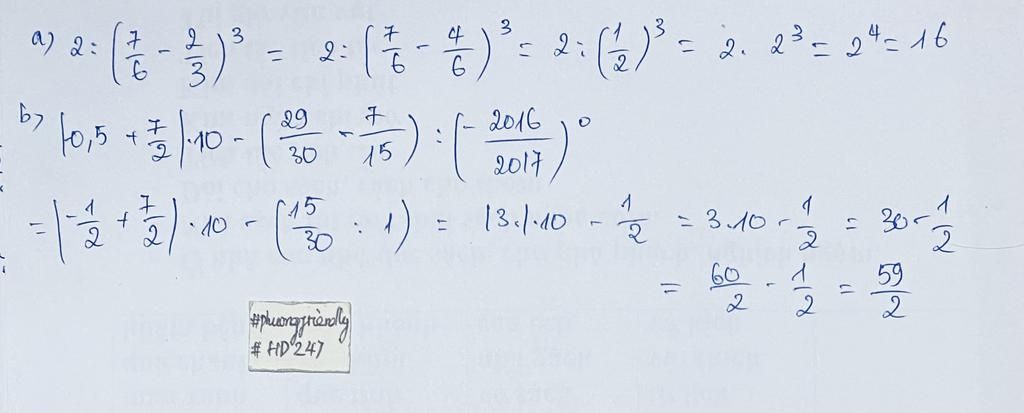 a) 2 : (7/6 - 2/3)³ = 2 : (7/6 - 4/6)³ = 2 : (1/2)³ = 2 . 2³ = 2⁴ = 16
b) |-0,5 + 7/2| . 10 - (29/30 - 7/15) : (-2016/2017)⁰
= |-1/2 + 7/2| . 10 - (15/30 : 1) = |3.| . 10 - 1/2 = 3.10 - 1/2 = 30 - 1/2
= 60/2 - 1/2 = 59/2
#phuongfriendly
# HD247